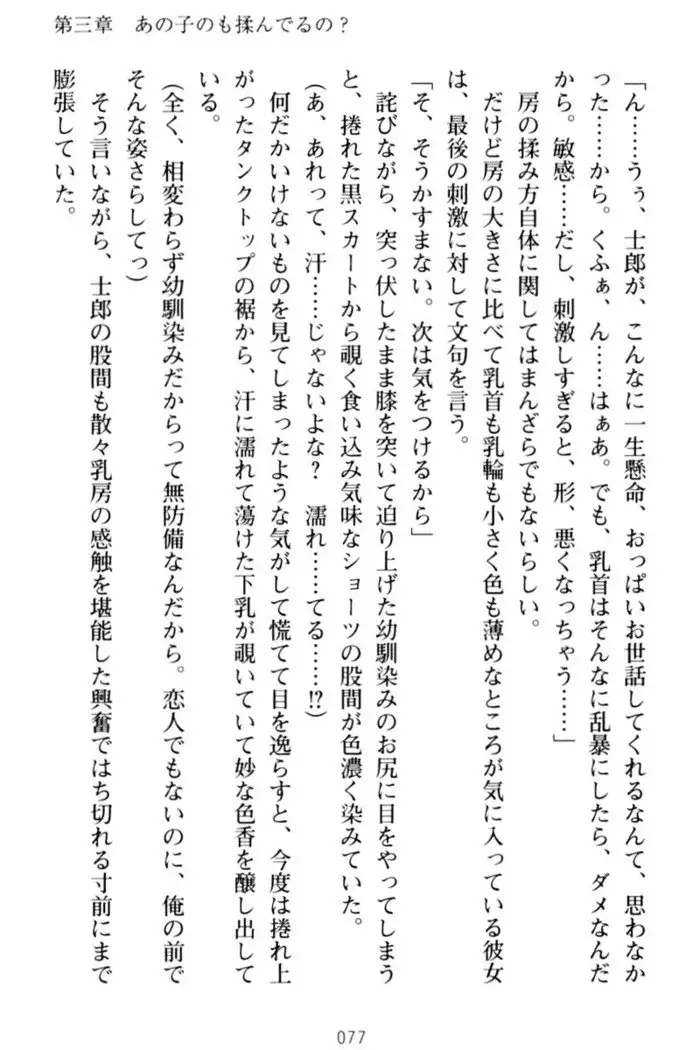 第三章　あの子のも揉んでるの？
「ん……うぅ、士郎が、こんなに一生懸命、おっぱいお世話してくれるなんて、思わなか
った……から。くふぁ、ん……はぁあ。でも、乳首はそんなに乱暴にしたら、ダメなんだ
から。敏感……だし、刺激しすぎると、形、悪くなっちゃう……」
　房の揉み方自体に関してはまんざらでもないらしい。
　だけど房の大きさに比べて乳首も乳輪も小さく色も薄めなところが気に入っている彼女
は、最後の刺激に対して文句を言う。
「そ、そうかすまない。次は気をつけるから」
　詫びながら、突っ伏したまま膝を突いて迫り上げた幼馴染みのお尻に目をやってしまう
と、捲れた黒スカートから覗く食い込み気味なショーツの股間が色濃く染みていた。
（あ、あれって、汗……じゃないよな？　濡れ……てる……!?）
　何だかいけないものを見てしまったような気がして慌てて目を逸らすと、今度は捲れ上
がったタンクトップの裾から、汗に濡れて蕩けた下乳が覗いていて妙な色香を醸し出して
いる。
（全く、相変わらず幼馴染みだからって無防備なんだから。恋人でもないのに、俺の前で
そんな姿さらしてっ）
　そう言いながら、士郎の股間も散々乳房の感触を堪能した興奮ではち切れる寸前にまで
膨張していた。
077